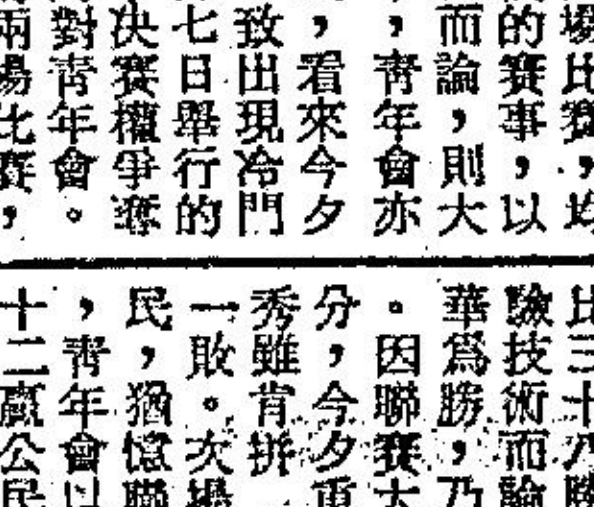 場比賽，均
的賽事，以
而論，則大
，青年會亦
，看來今夕
致出現冷門
七日舉行的
决賽權爭奪
對青年會。
兩場比賽，
比三十乃勝
驗技術而論
華爲勝，乃
。因聯賽大
分，今夕重
秀雖肯拼
一敗。次場
民，猶憶聯
，青年會以
十二贏公民